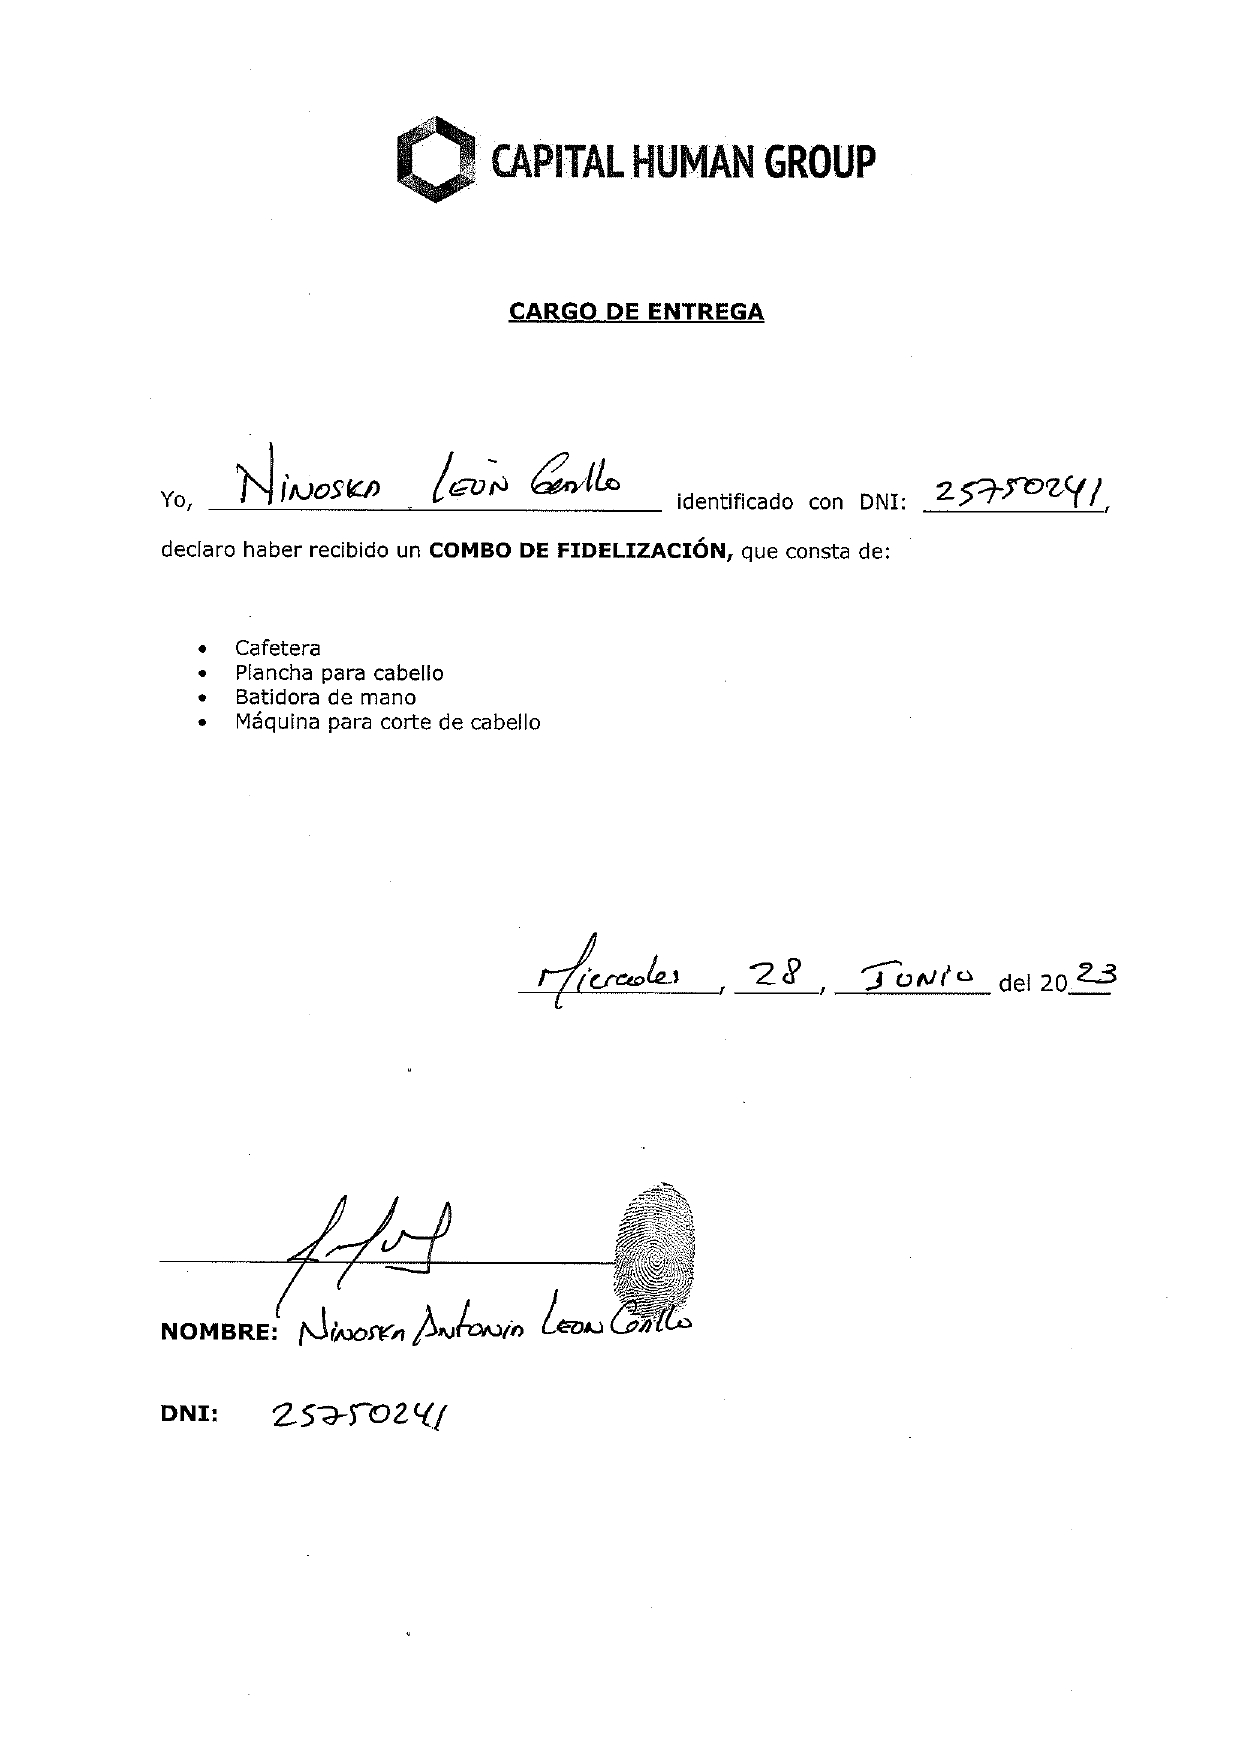 CAPITAL HUMAN GROUP
CARGO DE ENTREGA
Yo, Ninoska León identificado con DNI: 25750241,
declaro haber recibido un COMBO DE FIDELIZACIÓN, que consta de:
• Cafetera
• Plancha para cabello
• Batidora de mano
• Máquina para corte de cabello
Miercoles, 28, Junio del 2023
NOMBRE: Ninoska Antonia Leon
DNI: 25750241